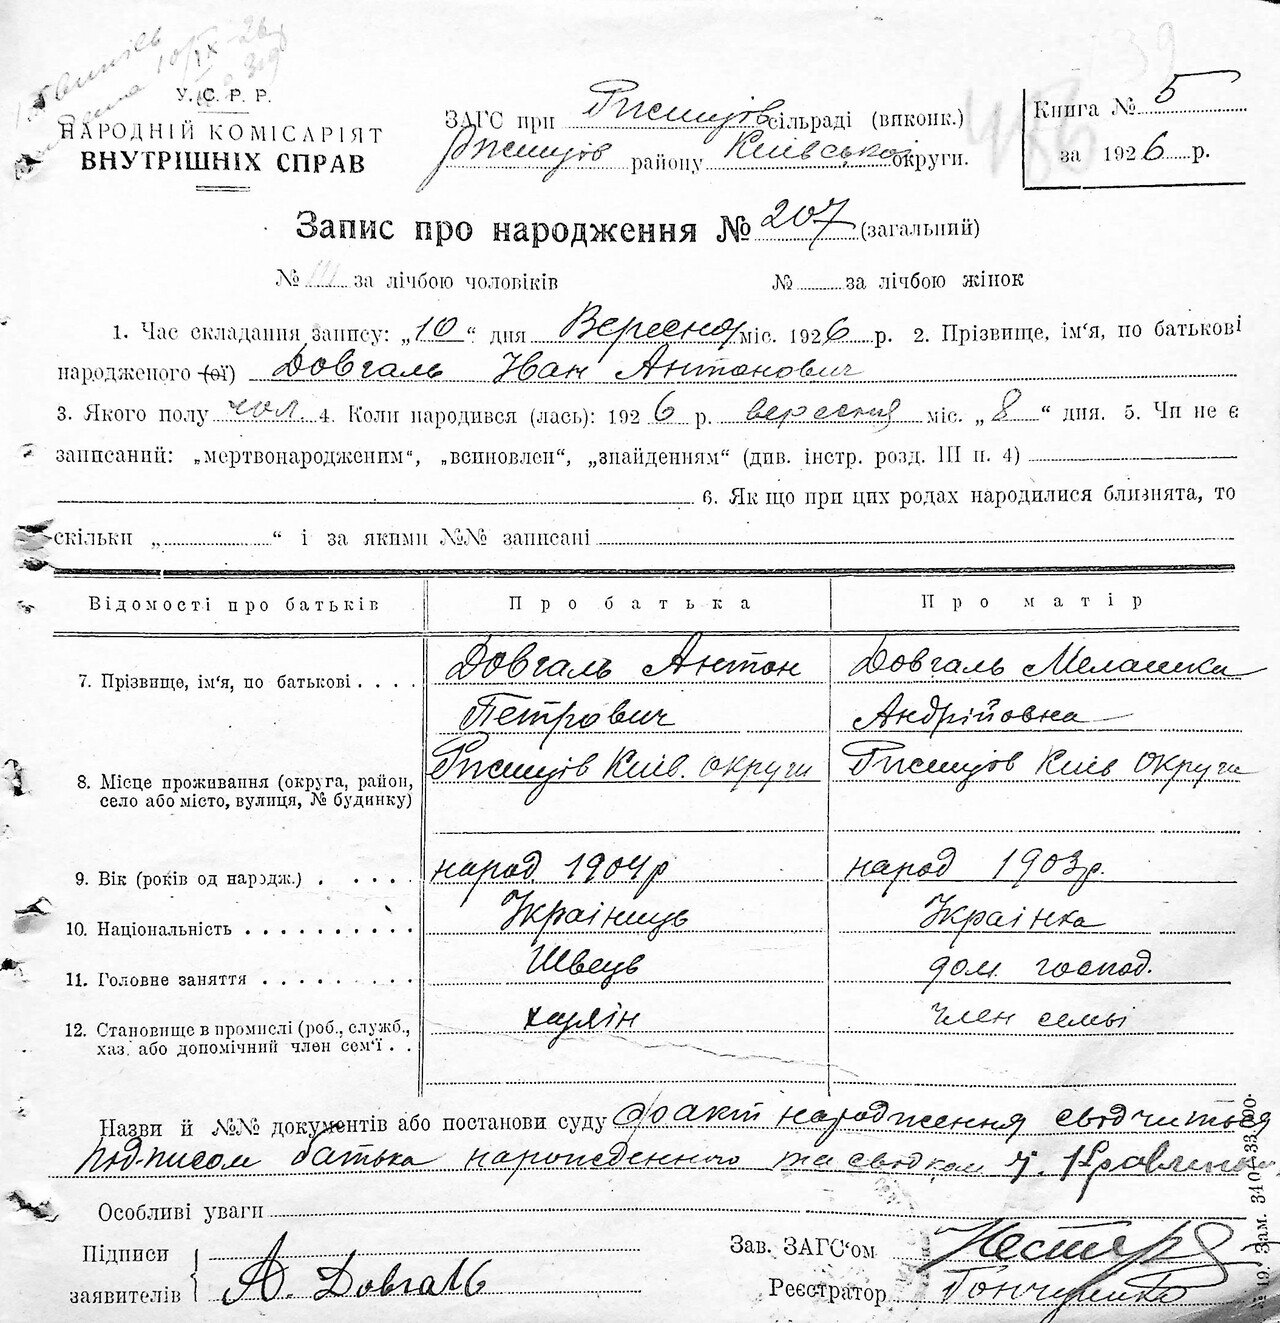 У. С. Р. Р.
НАРОДНІЙ КОМІСАРІЯТ
ВНУТРІШНІХ СПРАВ
ЗАГС при Ржищів сільраді (виконк.)
Ржищів району Київської округи.
Книга № 5
за 1926 р.
Запис про народження № 207 (загальний)
№ 111 за лічбою чоловіків № за лічбою жінок
1. Час складання запису: „10“ дня Вересня міс. 1926 р. 2. Прізвище, ім‘я, по батькові
народженого (ої) Довгаль Іван Антонович
3. Якого полу чол. 4. Коли народився (лась): 1926 р. вересня міс. „8“ дня. 5. Чи не є
записаний: „мертвонародженим“, „всиновлен“, „знайденням“ (див. інстр. розд. III п. 4)
6. Як що при цих родах народилися близнята, то
скільки „ “ і за якими №№ записані
Відомості про батьків Про батька Про матір
7. Прізвище, ім‘я, по батькові . . . . Довгаль Антон Довгаль Мелашка
Петрович Андрійовна
8. Місце проживання (округа, район, Ржищів Київ. округи Ржищів Київ округи
село або місто, вулиця, № будинку)
9. Вік (років од народж.) . . . . . народ 1904 р народ 1903 р.
10. Національність . . . . . . . . . . Українець Українка
11. Головне заняття . . . . . . . . . Швець дом. господ.
12. Становище в промислі (роб., служб., хазяїн член семьі
хаз. або допомічний член сем‘ї . .
Назви й №№ документів або постанови суду факт народження свідчиться
підписом батька нарожденного та свідком
Особливі уваги
Підписи
заявителів А. Довгаль
Зав. ЗАГС‘ом
Реєстратор